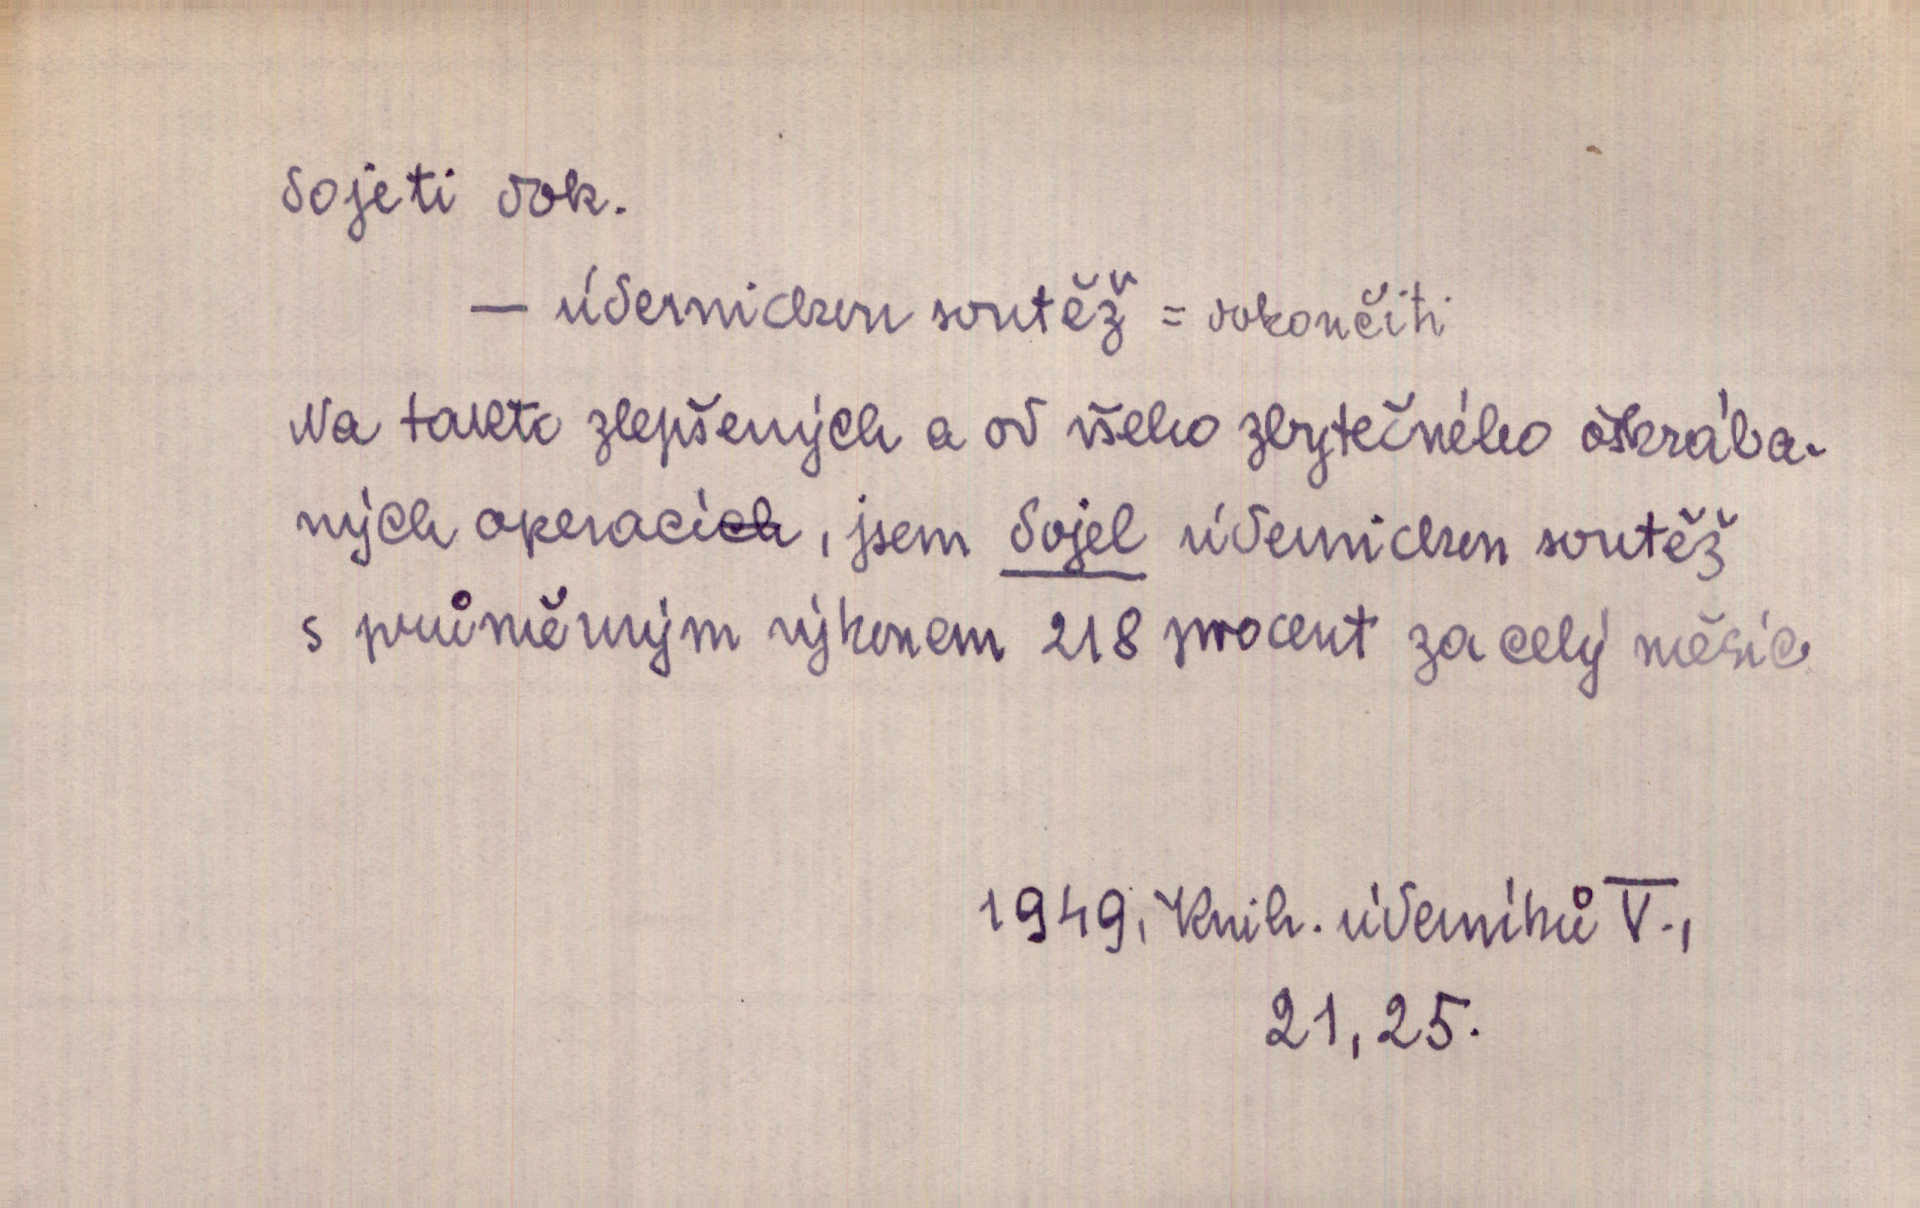 dojeti dok.
— údernickou soutěž = dokončiti
Na takto zlepšených a od všeho zbytečného oškrába-
ných operacích, jsem dojel údernickou soutěž
s průměrným výkonem 218 procent za celý měsíc
1949, Knih. úderníků V.,
21, 25.